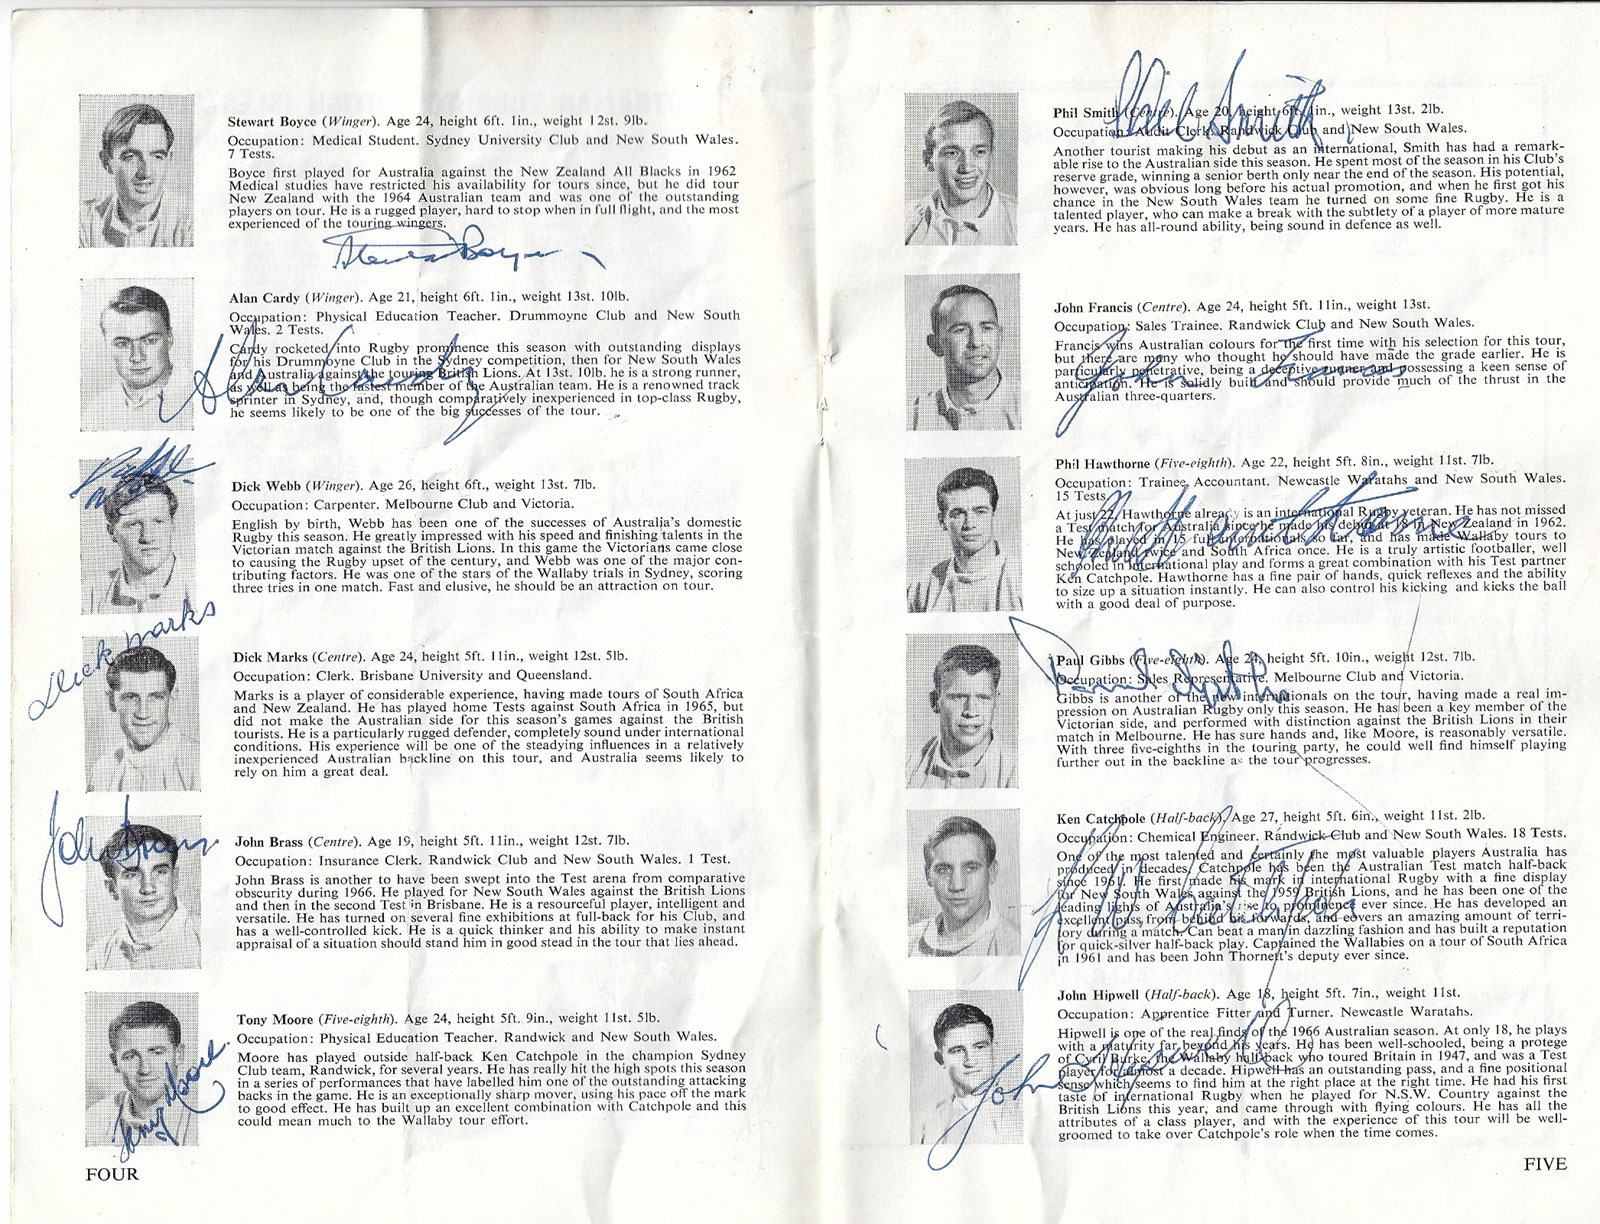 Stewart Boyce (Winger). Age 24, height 6ft. 1in., weight 12st. 9lb.
Occupation: Medical Student. Sydney University Club and New South Wales.
7 Tests.
Boyce first played for Australia against the New Zealand All Blacks in 1962
Medical studies have restricted his availability for tours since, but he did tour
New Zealand with the 1964 Australian team and was one of the outstanding
players on tour. He is a rugged player, hard to stop when in full flight, and the most
experienced of the touring wingers.
Stewart Boyce
Alan Cardy (Winger). Age 21, height 6ft. 1in., weight 13st. 10lb.
Occupation: Physical Education Teacher. Drummoyne Club and New South
Wales. 2 Tests.
Cardy rocketed into Rugby prominence this season with outstanding displays
for his Drummoyne Club in the Sydney competition, then for New South Wales
and Australia against the touring British Lions. At 13st. 10lb. he is a strong runner,
as well as being the fastest member of the Australian team. He is a renowned track
sprinter in Sydney, and, though comparatively inexperienced in top-class Rugby,
he seems likely to be one of the big successes of the tour.
Alan Cardy
Dick Webb (Winger). Age 26, height 6ft., weight 13st. 7lb.
Occupation: Carpenter. Melbourne Club and Victoria.
English by birth, Webb has been one of the successes of Australia's domestic
Rugby this season. He greatly impressed with his speed and finishing talents in the
Victorian match against the British Lions. In this game the Victorians came close
to causing the Rugby upset of the century, and Webb was one of the major con-
tributing factors. He was one of the stars of the Wallaby trials in Sydney, scoring
three tries in one match. Fast and elusive, he should be an attraction on tour.
Dick Marks
Dick Marks (Centre). Age 24, height 5ft. 11in., weight 12st. 5lb.
Occupation: Clerk. Brisbane University and Queensland.
Marks is a player of considerable experience, having made tours of South Africa
and New Zealand. He has played home Tests against South Africa in 1965, but
did not make the Australian side for this season's games against the British
tourists. He is a particularly rugged defender, completely sound under international
conditions. His experience will be one of the steadying influences in a relatively
inexperienced Australian backline on this tour, and Australia seems likely to
rely on him a great deal.
John Brass
John Brass (Centre). Age 19, height 5ft. 11in., weight 12st. 7lb.
Occupation: Insurance Clerk. Randwick Club and New South Wales. 1 Test.
John Brass is another to have been swept into the Test arena from comparative
obscurity during 1966. He played for New South Wales against the British Lions
and then in the second Test in Brisbane. He is a resourceful player, intelligent and
versatile. He has turned on several fine exhibitions at full-back for his Club, and
has a well-controlled kick. He is a quick thinker and his ability to make instant
appraisal of a situation should stand him in good stead in the tour that lies ahead.
Tony Moore (Five-eighth). Age 24, height 5ft. 9in., weight 11st. 5lb.
Occupation: Physical Education Teacher. Randwick and New South Wales.
Moore has played outside half-back Ken Catchpole in the champion Sydney
Club team, Randwick, for several years. He has really hit the high spots this season
in a series of performances that have labelled him one of the outstanding attacking
backs in the game. He is an exceptionally sharp mover, using his pace off the mark
to good effect. He has built up an excellent combination with Catchpole and this
could mean much to the Wallaby tour effort.
Tony Moore
FOUR
Phil Smith
Phil Smith (Centre). Age 20, height 6ft. 1in., weight 13st. 2lb.
Occupation: Audit Clerk. Randwick Club and New South Wales.
Another tourist making his debut as an international, Smith has had a remark-
able rise to the Australian side this season. He spent most of the season in his Club's
reserve grade, winning a senior berth only near the end of the season. His potential,
however, was obvious long before his actual promotion, and when he first got his
chance in the New South Wales team he turned on some fine Rugby. He is a
talented player, who can make a break with the subtlety of a player of more mature
years. He has all-round ability, being sound in defence as well.
John Francis (Centre). Age 24, height 5ft. 11in., weight 13st.
Occupation: Sales Trainee. Randwick Club and New South Wales.
Francis wins Australian colours for the first time with his selection for this tour,
but there are many who thought he should have made the grade earlier. He is
particularly penetrative, being a deceptive runner and possessing a keen sense of
anticipation. He is solidly built and should provide much of the thrust in the
Australian three-quarters.
John Francis
Phil Hawthorne (Five-eighth). Age 22, height 5ft. 8in., weight 11st. 7lb.
Occupation: Trainee Accountant. Newcastle Waratahs and New South Wales.
15 Tests.
At just 22, Hawthorne already is an international Rugby veteran. He has not missed
a Test match for Australia since he made his debut at 18 in New Zealand in 1962.
He has played in 15 full internationals so far, and has made Wallaby tours to
New Zealand twice and South Africa once. He is a truly artistic footballer, well
schooled in international play and forms a great combination with his Test partner
Ken Catchpole. Hawthorne has a fine pair of hands, quick reflexes and the ability
to size up a situation instantly. He can also control his kicking and kicks the ball
with a good deal of purpose.
P Hawthorne
Paul Gibbs (Five-eighth). Age 24, height 5ft. 10in., weight 12st. 7lb.
Occupation: Sales Representative. Melbourne Club and Victoria.
Gibbs is another of the new internationals on the tour, having made a real im-
pression on Australian Rugby only this season. He has been a key member of the
Victorian side, and performed with distinction against the British Lions in their
match in Melbourne. He has sure hands and, like Moore, is reasonably versatile.
With three five-eighths in the touring party, he could well find himself playing
further out in the backline as the tour progresses.
Paul Gibbs
Ken Catchpole (Half-back). Age 27, height 5ft. 6in., weight 11st. 2lb.
Occupation: Chemical Engineer. Randwick Club and New South Wales. 18 Tests.
One of the most talented and certainly the most valuable players Australia has
produced in decades, Catchpole has been the Australian Test match half-back
since 1961. He first made his mark in international Rugby with a fine display
for New South Wales against the 1959 British Lions, and he has been one of the
leading lights of Australia's rise to prominence ever since. He has developed an
excellent pass from behind his forwards, and covers an amazing amount of terri-
tory during a match. Can beat a man in dazzling fashion and has built a reputation
for quick-silver half-back play. Captained the Wallabies on a tour of South Africa
in 1961 and has been John Thornett's deputy ever since.
John Hipwell (Half-back). Age 18, height 5ft. 7in., weight 11st.
Occupation: Apprentice Fitter and Turner. Newcastle Waratahs.
Hipwell is one of the real finds of the 1966 Australian season. At only 18, he plays
with a maturity far beyond his years. He has been well-schooled, being a protege
of Cyril Burke, the Wallaby half-back who toured Britain in 1947, and was a Test
player for almost a decade. Hipwell has an outstanding pass, and a fine positional
sense which seems to find him at the right place at the right time. He had his first
taste of international Rugby when he played for N.S.W. Country against the
British Lions this year, and came through with flying colours. He has all the
attributes of a class player, and with the experience of this tour will be well-
groomed to take over Catchpole's role when the time comes.
John Hipwell
FIVE